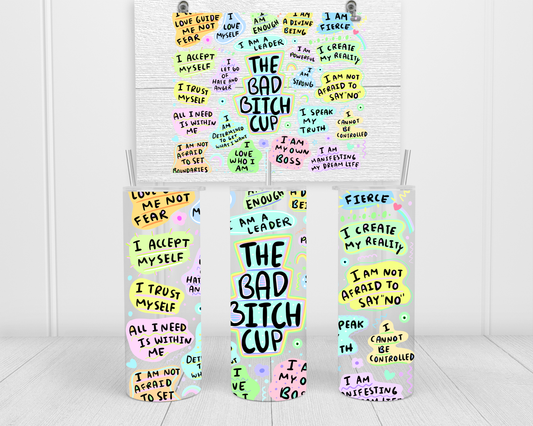 LOVE GUIDE
ME NOT
FEAR
I
LOVE
MYSELF
I
AM
ENOUGH
I AM
A DIVINE
BEING
I AM
FIERCE
I AM A LEADER
I ACCEPT
MYSELF
I
LET GO
OF
HATE AND
ANGER
THE
BAD
BITCH
CUP
I AM
POWERFUL
I CREATE
MY REALITY
I
AM
STRONG
I AM NOT
AFRAID TO
SAY "NO"
I TRUST
MYSELF
ALL I NEED
IS WITHIN
ME
I
AM
DETERMINED
TO GET
WHAT I WANT
I SPEAK
MY
TRUTH
I
CANNOT
BE
CONTROLLED
I AM NOT
AFRAID
TO SET
BOUNDARIES
I
LOVE
WHO I
AM
I AM
MY OWN
BOSS
I AM
MANIFESTING
MY DREAM LIFE
LOVE GUIDE
ME NOT
FEAR
I ACCEPT
MYSELF
HATE
AN
I TRUST
MYSELF
ALL I NEED
IS WITHIN
ME
DET
TO
WH
I AM NOT
AFRAID
TO SET
ENOUGH
A DI
BEI
I AM A
LEADER
THE
BAD
BITCH
CUP
I
VE
I
I AM
MY O
BO
FIERCE
I CREATE
MY REALITY
I AM NOT
AFRAID TO
SAY "NO"
PEAK
Y
TH
I
CANNOT
BE
CONTROLLED
I AM
ANIFESTING
REAM LIFE